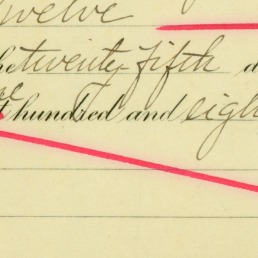 twelve
he twenty fifth d
hundred and eigh